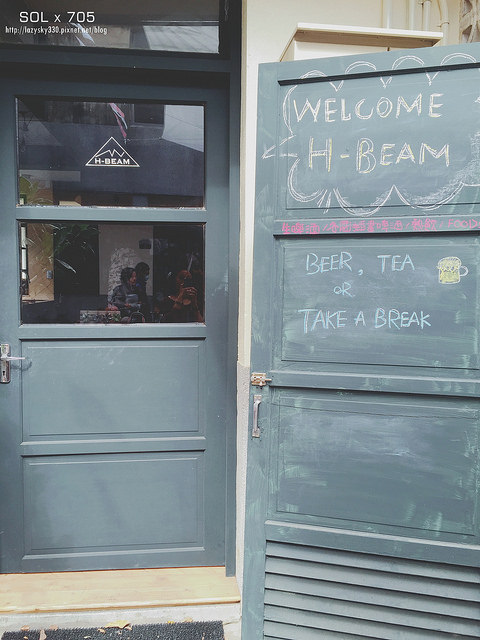 SOL x 705
http://lazysky330.pixnet.net/blog
H-BEAM
WELCOME
H-BEAM
FOOD
BEER, TEA
OR
TAKE A BREAK